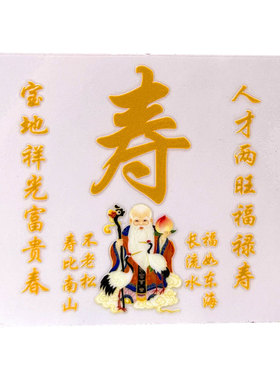 寿
人才两旺福禄寿
宝地祥光富贵春
福如东海
长流水
寿比南山
不老松